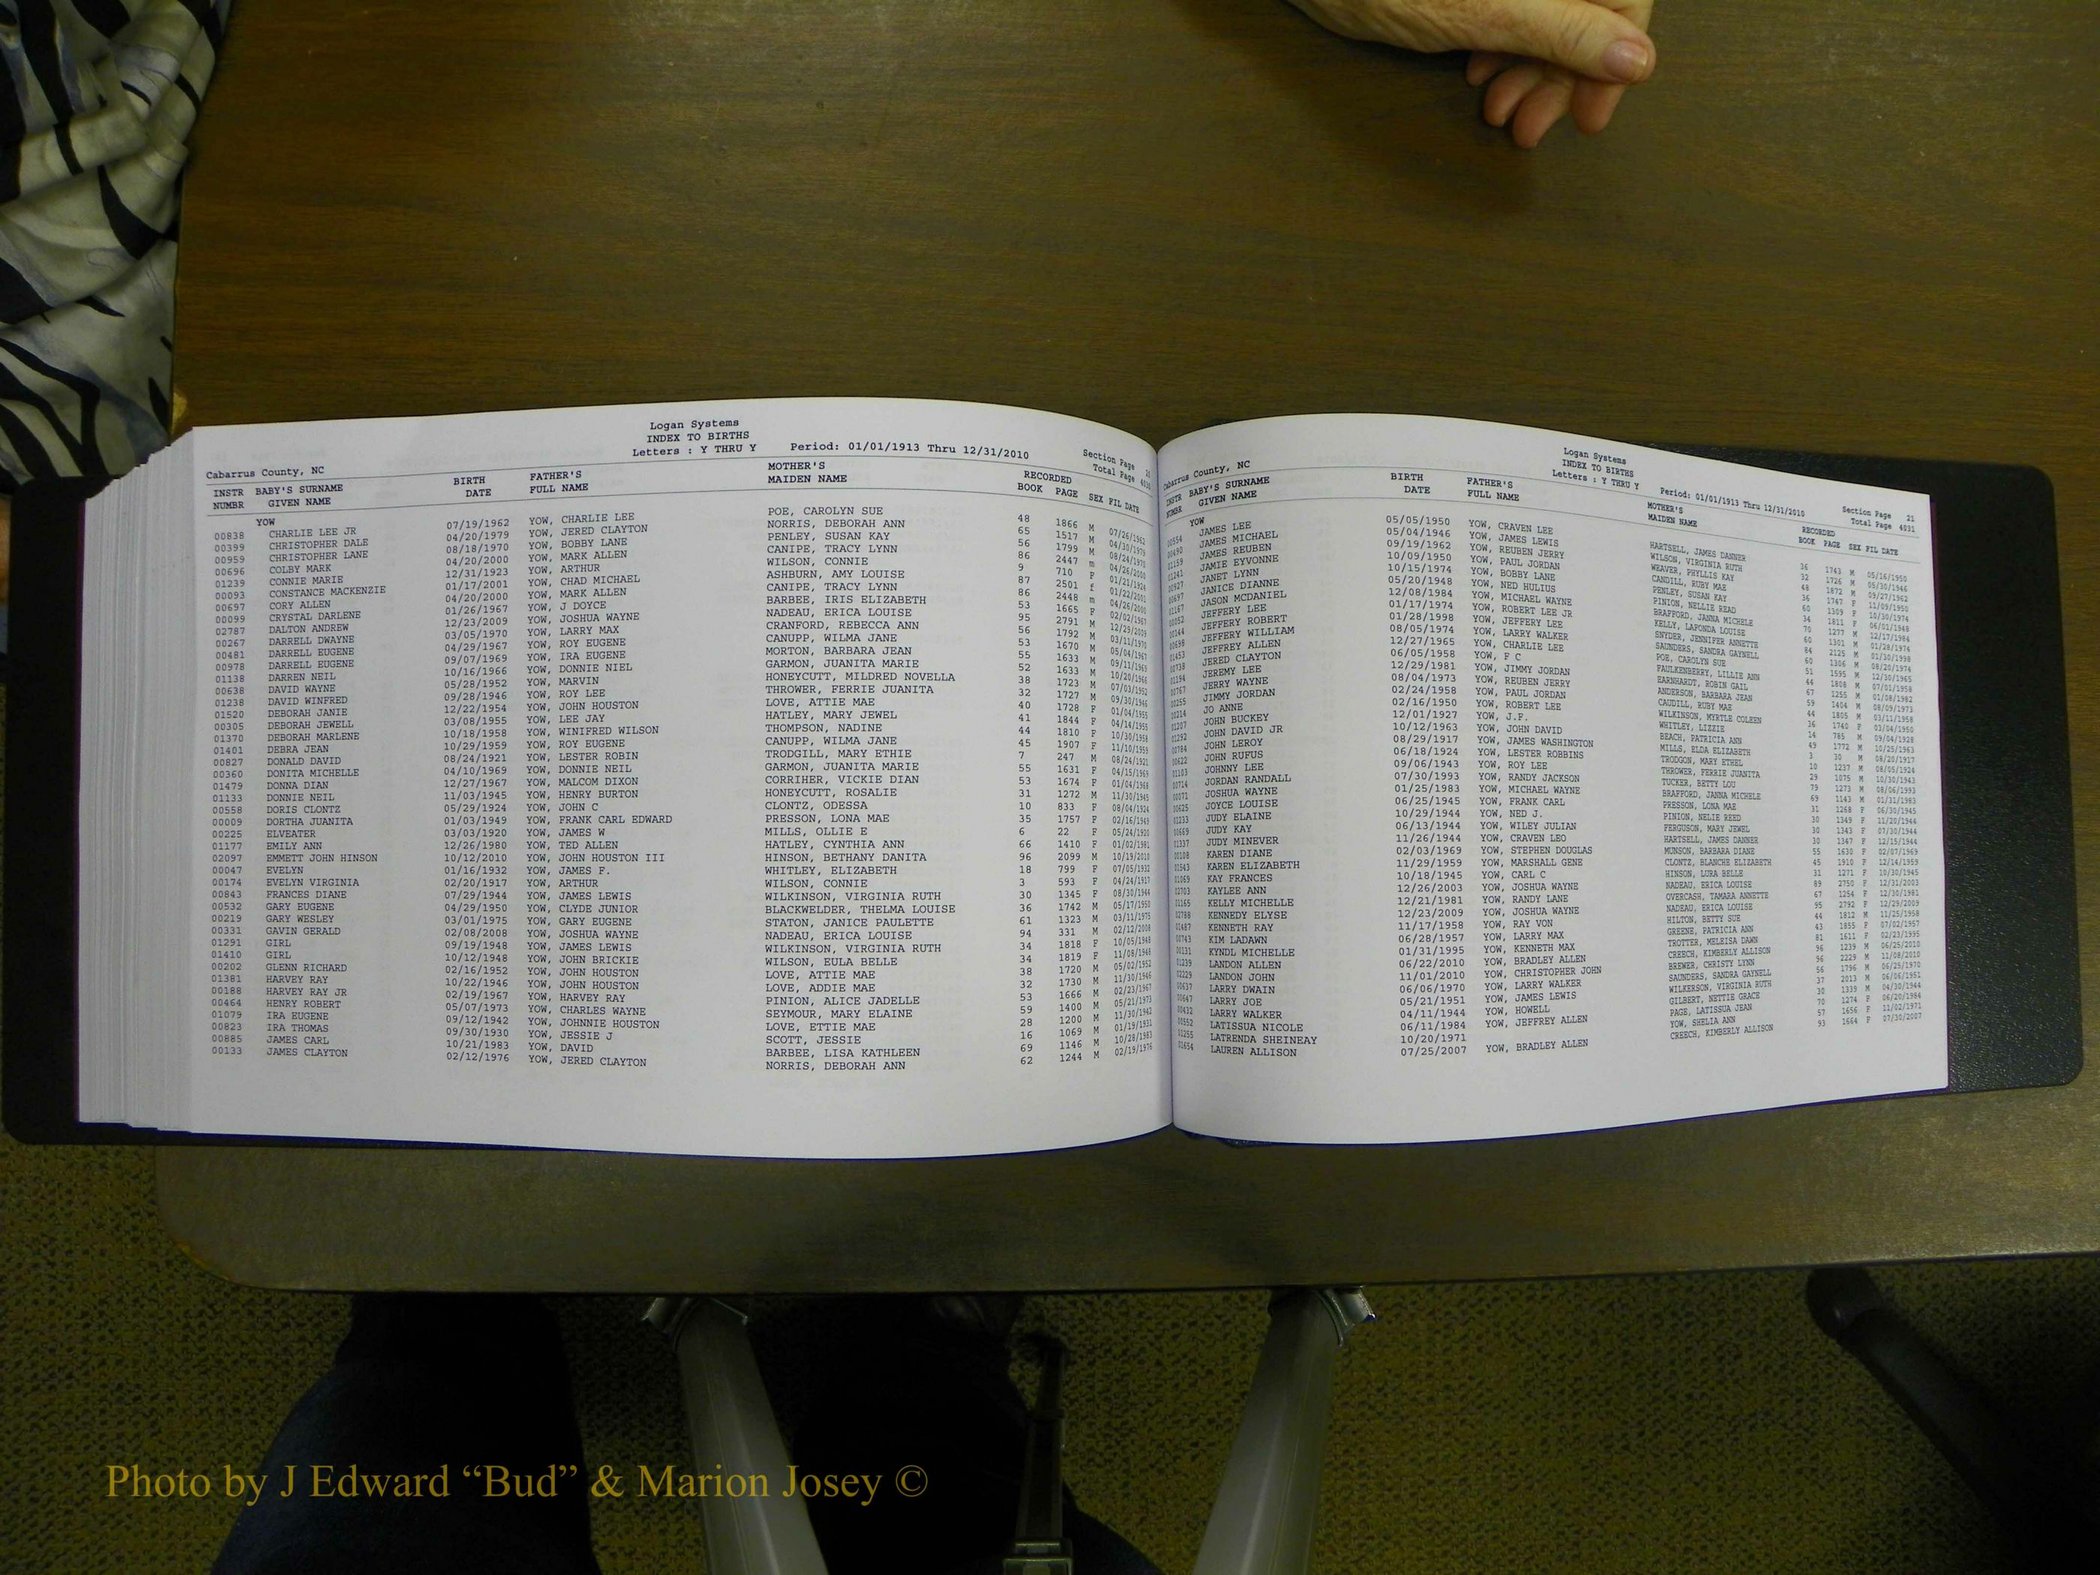 Logan Systems
INDEX TO BIRTHS
Cabarrus County, NC Letters : Y THRU Y Period: 01/01/1913 Thru 12/31/2010 Section Page 20
Total Page 4030
INSTR BABY'S SURNAME BIRTH FATHER'S MOTHER'S RECORDED
NUMBR GIVEN NAME DATE FULL NAME MAIDEN NAME BOOK PAGE SEX FIL DATE
YOW
00838 CHARLIE LEE JR 07/19/1962 YOW, CHARLIE LEE POE, CAROLYN SUE 48 1866 M 07/26/1962
00399 CHRISTOPHER DALE 04/20/1979 YOW, JERED CLAYTON NORRIS, DEBORAH ANN 65 1517 M 04/30/1979
00959 CHRISTOPHER LANE 08/18/1970 YOW, BOBBY LANE PENLEY, SUSAN KAY 56 1799 M 08/24/1970
00696 COLBY MARK 04/20/2000 YOW, MARK ALLEN CANIPE, TRACY LYNN 86 2447 m 04/26/2000
01239 CONNIE MARIE 12/31/1923 YOW, ARTHUR WILSON, CONNIE 9 710 F 01/21/1924
00093 CONSTANCE MACKENZIE 01/17/2001 YOW, CHAD MICHAEL ASHBURN, AMY LOUISE 87 2501 f 01/22/2001
00697 CORY ALLEN 04/20/2000 YOW, MARK ALLEN CANIPE, TRACY LYNN 86 2448 m 04/26/2000
00099 CRYSTAL DARLENE 01/26/1967 YOW, J DOYCE BARBEE, IRIS ELIZABETH 53 1665 F 02/02/1967
02787 DALTON ANDREW 12/23/2009 YOW, JOSHUA WAYNE NADEAU, ERICA LOUISE 95 2791 M 12/29/2009
00267 DARRELL DWAYNE 03/05/1970 YOW, LARRY MAX CRANFORD, REBECCA ANN 56 1792 M 03/11/1970
00481 DARRELL EUGENE 04/29/1967 YOW, ROY EUGENE CANUPP, WILMA JANE 53 1670 M 05/04/1967
00978 DARRELL EUGENE 09/07/1969 YOW, IRA EUGENE MORTON, BARBARA JEAN 55 1633 M 09/11/1969
01138 DARREN NEIL 10/16/1966 YOW, DONNIE NIEL GARMON, JUANITA MARIE 52 1633 M 10/20/1966
00638 DAVID WAYNE 05/28/1952 YOW, MARVIN HONEYCUTT, MILDRED NOVELLA 38 1723 M 07/03/1952
01238 DAVID WINFRED 09/28/1946 YOW, ROY LEE THROWER, FERRIE JUANITA 32 1727 M 09/30/1946
01520 DEBORAH JANIE 12/22/1954 YOW, JOHN HOUSTON LOVE, ATTIE MAE 40 1728 F 01/04/1955
00305 DEBORAH JEWELL 03/08/1955 YOW, LEE JAY HATLEY, MARY JEWEL 41 1844 F 04/14/1955
01370 DEBORAH MARLENE 10/18/1958 YOW, WINIFRED WILSON THOMPSON, NADINE 44 1810 F 10/30/1958
01401 DEBRA JEAN 10/29/1959 YOW, ROY EUGENE CANUPP, WILMA JANE 45 1907 F 11/10/1959
00827 DONALD DAVID 08/24/1921 YOW, LESTER ROBIN TRODGILL, MARY ETHIE 7 247 M 08/24/1921
00360 DONITA MICHELLE 04/10/1969 YOW, DONNIE NEIL GARMON, JUANITA MARIE 55 1631 F 04/15/1969
01479 DONNA DIAN 12/27/1967 YOW, MALCOM DIXON CORRIHER, VICKIE DIAN 53 1674 F 01/04/1968
01133 DONNIE NEIL 11/03/1945 YOW, HENRY BURTON HONEYCUTT, ROSALIE 31 1272 M 11/30/1945
00558 DORIS CLONTZ 05/29/1924 YOW, JOHN C CLONTZ, ODESSA 10 833 F 08/04/1924
00009 DORTHA JUANITA 01/03/1949 YOW, FRANK CARL EDWARD PRESSON, LONA MAE 35 1757 F 02/16/1949
00225 ELVEATER 03/03/1920 YOW, JAMES W MILLS, OLLIE E 6 22 F 05/24/1920
01177 EMILY ANN 12/26/1980 YOW, TED ALLEN HATLEY, CYNTHIA ANN 66 1410 F 01/02/1981
02097 EMMETT JOHN HINSON 10/12/2010 YOW, JOHN HOUSTON III HINSON, BETHANY DANITA 96 2099 M 10/19/2010
00047 EVELYN 01/16/1932 YOW, JAMES F. WHITLEY, ELIZABETH 18 799 F 07/05/1932
00174 EVELYN VIRGINIA 02/20/1917 YOW, ARTHUR WILSON, CONNIE 3 593 F 04/24/1917
00843 FRANCES DIANE 07/29/1944 YOW, JAMES LEWIS WILKINSON, VIRGINIA RUTH 30 1345 F 08/30/1944
00532 GARY EUGENE 04/29/1950 YOW, CLYDE JUNIOR BLACKWELDER, THELMA LOUISE 36 1742 M 05/17/1950
00219 GARY WESLEY 03/01/1975 YOW, GARY EUGENE STATON, JANICE PAULETTE 61 1323 M 03/11/1975
00331 GAVIN GERALD 02/08/2008 YOW, JOSHUA WAYNE NADEAU, ERICA LOUISE 94 331 M 02/12/2008
01291 GIRL 09/19/1948 YOW, JAMES LEWIS WILKINSON, VIRGINIA RUTH 34 1818 F 10/05/1948
01410 GIRL 10/12/1948 YOW, JOHN BRICKIE WILSON, EULA BELLE 34 1819 F 11/08/1948
00202 GLENN RICHARD 02/16/1952 YOW, JOHN HOUSTON LOVE, ATTIE MAE 38 1720 M 05/02/1952
01381 HARVEY RAY 10/22/1946 YOW, JOHN HOUSTON LOVE, ADDIE MAE 32 1730 M 11/30/1946
00188 HARVEY RAY JR 02/19/1967 YOW, HARVEY RAY PINION, ALICE JADELLE 53 1666 M 02/23/1967
00464 HENRY ROBERT 05/07/1973 YOW, CHARLES WAYNE SEYMOUR, MARY ELAINE 59 1400 M 05/21/1973
01079 IRA EUGENE 09/12/1942 YOW, JOHNNIE HOUSTON LOVE, ETTIE MAE 28 1200 M 11/30/1942
00823 IRA THOMAS 09/30/1930 YOW, JESSIE J SCOTT, JESSIE 16 1069 M 01/19/1931
00885 JAMES CARL 10/21/1983 YOW, DAVID BARBEE, LISA KATHLEEN 69 1146 M 10/28/1983
00133 JAMES CLAYTON 02/12/1976 YOW, JERED CLAYTON NORRIS, DEBORAH ANN 62 1244 M 02/19/1976
Logan Systems
INDEX TO BIRTHS
Cabarrus County, NC Letters : Y THRU Y Period: 01/01/1913 Thru 12/31/2010 Section Page 21
Total Page 4031
INSTR BABY'S SURNAME BIRTH FATHER'S MOTHER'S RECORDED
NUMBR GIVEN NAME DATE FULL NAME MAIDEN NAME BOOK PAGE SEX FIL DATE
YOW
00554 JAMES LEE 05/05/1950 YOW, CRAVEN LEE HARTSELL, JAMES DANNER 36 1743 M 05/16/1950
00490 JAMES MICHAEL 05/04/1946 YOW, JAMES LEWIS WILSON, VIRGINIA RUTH 32 1726 M 05/30/1946
01159 JAMES REUBEN 09/19/1962 YOW, REUBEN JERRY WEAVER, PHYLLIS KAY 48 1872 M 09/27/1962
01241 JAMIE EYVONNE 10/09/1950 YOW, PAUL JORDAN CANDILL, RUBY MAE 36 1747 F 11/09/1950
00927 JANET LYNN 10/15/1974 YOW, BOBBY LANE PENLEY, SUSAN KAY 60 1309 F 10/30/1974
00697 JANICE DIANNE 05/20/1948 YOW, NED HULIUS PINION, NELLIE READ 34 1811 F 06/01/1948
01167 JASON MCDANIEL 12/08/1984 YOW, MICHAEL WAYNE BRAFFORD, JANNA MICHELE 70 1277 M 12/17/1984
00052 JEFFERY LEE 01/17/1974 YOW, ROBERT LEE JR KELLY, LAFONDA LOUISE 60 1301 M 01/28/1974
00144 JEFFERY ROBERT 01/28/1998 YOW, JEFFERY LEE SNYDER, JENNIFER ANNETTE 84 2125 M 01/30/1998
00698 JEFFERY WILLIAM 08/05/1974 YOW, LARRY WALKER SAUNDERS, SANDRA GAYNELL 60 1306 M 08/20/1974
01453 JEFFREY ALLEN 12/27/1965 YOW, CHARLIE LEE POE, CAROLYN SUE 51 1595 M 12/30/1965
00738 JERED CLAYTON 06/05/1958 YOW, F C FAULKENBERRY, LILLIE ANN 44 1808 M 07/01/1958
01194 JEREMY LEE 12/29/1981 YOW, JIMMY JORDAN EARNHARDT, ROBIN GAIL 67 1255 M 01/08/1982
00767 JERRY WAYNE 08/04/1973 YOW, REUBEN JERRY ANDERSON, BARBARA JEAN 59 1404 M 08/09/1973
00255 JIMMY JORDAN 02/24/1958 YOW, PAUL JORDAN CAUDILL, RUBY MAE 44 1805 M 03/11/1958
00214 JO ANNE 02/16/1950 YOW, ROBERT LEE WILKINSON, MYRTLE COLEEN 36 1740 F 03/04/1950
01207 JOHN BUCKEY 12/01/1927 YOW, J.F. WHITLEY, LIZZIE 14 785 M 09/04/1928
01292 JOHN DAVID JR 10/12/1963 YOW, JOHN DAVID BEACH, PATRICIA ANN 49 1772 M 10/25/1963
00784 JOHN LEROY 08/29/1917 YOW, JAMES WASHINGTON MILLS, ELDA ELIZABETH 3 30 M 08/20/1917
00622 JOHN RUFUS 06/18/1924 YOW, LESTER ROBBINS TRODGON, MARY ETHEL 10 1237 M 08/05/1924
01103 JOHNNY LEE 09/06/1943 YOW, ROY LEE THROWER, FERRIE JUANITA 29 1075 M 10/30/1943
00714 JORDAN RANDALL 07/30/1993 YOW, RANDY JACKSON TUCKER, BETTY LOU 79 1273 M 08/06/1993
00071 JOSHUA WAYNE 01/25/1983 YOW, MICHAEL WAYNE BRAFFORD, JANNA MICHELE 69 1143 M 01/31/1983
00625 JOYCE LOUISE 06/25/1945 YOW, FRANK CARL PRESSON, LONA MAE 31 1268 F 06/30/1945
01233 JUDY ELAINE 10/29/1944 YOW, NED J. PINION, NELIE REED 30 1349 F 11/20/1944
00669 JUDY KAY 06/13/1944 YOW, WILEY JULIAN FERGUSON, MARY JEWEL 30 1343 F 07/30/1944
01337 JUDY MINEVER 11/26/1944 YOW, CRAVEN LEO HARTSELL, JAMES DANNER 30 1347 F 12/15/1944
00108 KAREN DIANE 02/03/1969 YOW, STEPHEN DOUGLAS MUNSON, BARBARA DIANE 55 1630 F 02/07/1969
01543 KAREN ELIZABETH 11/29/1959 YOW, MARSHALL GENE CLONTZ, BLANCHE ELIZABETH 45 1910 F 12/14/1959
01069 KAY FRANCES 10/18/1945 YOW, CARL C HINSON, LURA BELLE 31 1271 F 10/30/1945
02703 KAYLEE ANN 12/26/2003 YOW, JOSHUA WAYNE NADEAU, ERICA LOUISE 89 2750 F 12/31/2003
01165 KELLY MICHELLE 12/21/1981 YOW, RANDY LANE OVERCASH, TAMARA ANNETTE 67 1254 F 12/30/1981
02788 KENNEDY ELYSE 12/23/2009 YOW, JOSHUA WAYNE NADEAU, ERICA LOUISE 95 2792 F 12/29/2009
01487 KENNETH RAY 11/17/1958 YOW, RAY VON HILTON, BETTY SUE 44 1812 M 11/25/1958
00743 KIM LADAWN 06/28/1957 YOW, LARRY MAX GREENE, PATRICIA ANN 43 1855 F 07/02/1957
00131 KYNDL MICHELLE 01/31/1995 YOW, KENNETH MAX TROTTER, MELEISA DAWN 81 1611 F 02/23/1995
01239 LANDON ALLEN 06/22/2010 YOW, BRADLEY ALLEN CREECH, KIMBERLY ALLISON 96 1239 M 06/25/2010
02229 LANDON JOHN 11/01/2010 YOW, CHRISTOPHER JOHN BREWER, CHRISTY LYNN 96 2229 M 11/08/2010
00637 LARRY DWAIN 06/06/1970 YOW, LARRY WALKER SAUNDERS, SANDRA GAYNELL 56 1796 M 06/25/1970
00647 LARRY JOE 05/21/1951 YOW, JAMES LEWIS WILKERSON, VIRGINIA RUTH 37 2013 M 06/06/1951
00432 LARRY WALKER 04/11/1944 YOW, HOWELL GILBERT, NETTIE GRACE 30 1339 M 04/30/1944
00552 LATISSUA NICOLE 06/11/1984 YOW, JEFFREY ALLEN PAGE, LATISSUA JEAN 70 1274 F 06/20/1984
01255 LATRENDA SHEINEAY 10/20/1971 YOW, SHELIA ANN 57 1656 F 11/02/1971
01654 LAUREN ALLISON 07/25/2007 YOW, BRADLEY ALLEN CREECH, KIMBERLY ALLISON 93 1664 F 07/30/2007
Photo by J Edward “Bud” & Marion Josey ©